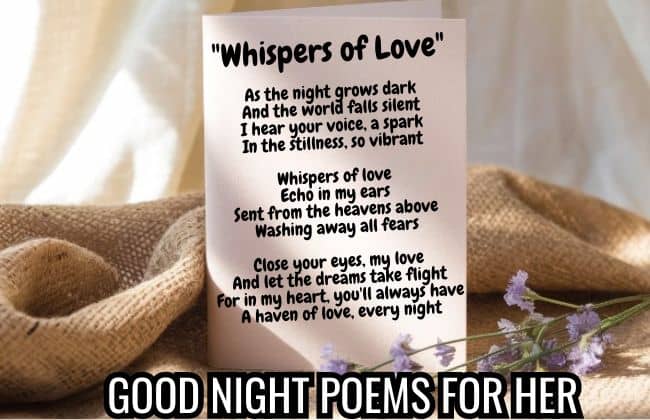 "Whispers of Love"
As the night grows dark
And the world falls silent
I hear your voice, a spark
In the stillness, so vibrant
Whispers of love
Echo in my ears
Sent from the heavens above
Washing away all fears
Close your eyes, my love
And let the dreams take flight
For in my heart, you'll always have
A haven of love, every night
GOOD NIGHT POEMS FOR HER